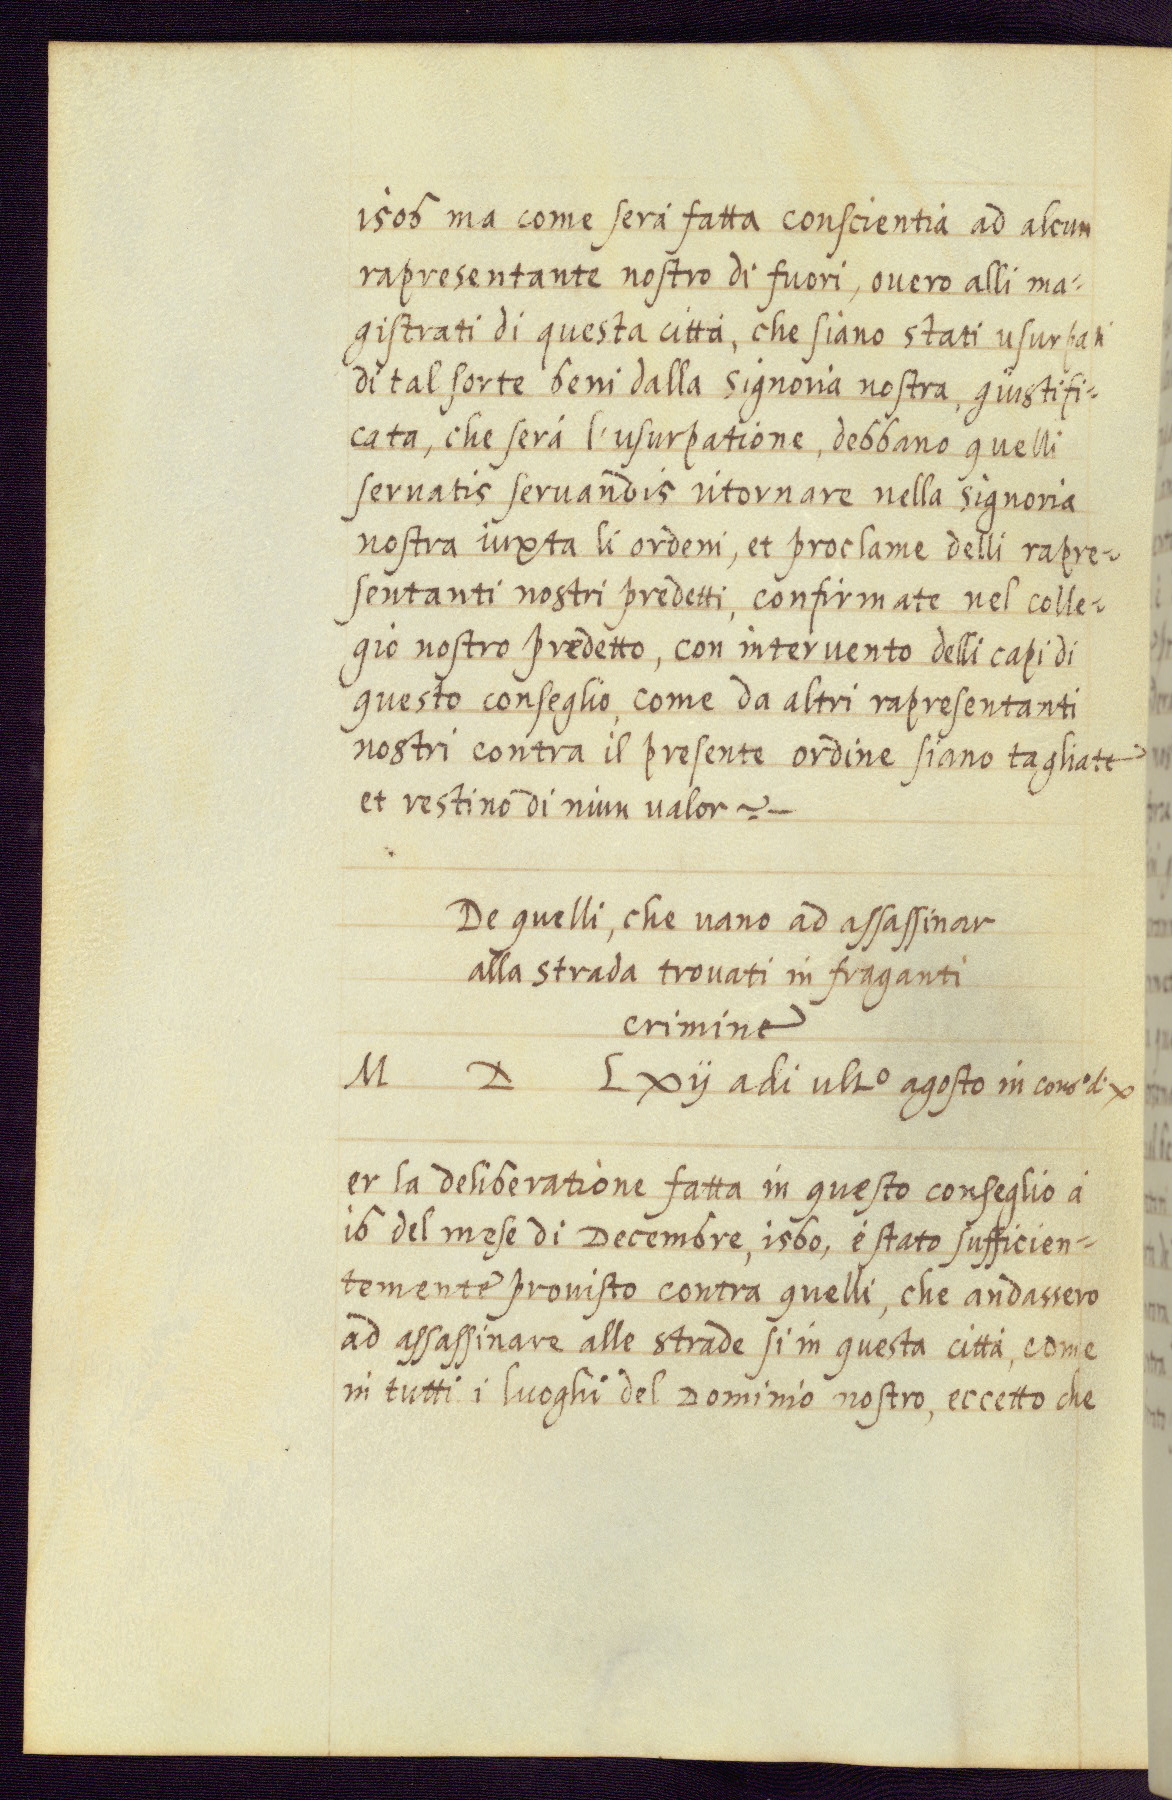 1506 ma come será fatta conscientia ad alcun
rapresentante nostro di fuori, ouero alli ma-
gistrati di questa cittá, che siano stati usurpati
di tal sorte beni dalla signoria nostra, giustifi-
cata, che será l'usurpatione, debbano quelli
seruatis seruandis ritornare nella signoria
nostra iuxta li ordeni, et proclame delli rapre-
sentanti nostri predetti, confirmate nel colle-
gio nostro predetto, con interuento delli capi di
questo conseglio, come da altri rapresentanti
nostri contra il presente ordine siano tagliate
et restino di niun valor
De quelli, che uano ad assassinar
alla strada trouati in fraganti
crimine
M D Lxij adi ultº agosto in consº di x
er la deliberatione fatta in questo conseglio á
16 del mese di Decembre, 1560, é stato sufficien-
temente prouisto contra quelli, che andassero
ad assassinare alle strade si in questa cittá, come
in tutti i luoghi del Dominio nostro, eccetto che